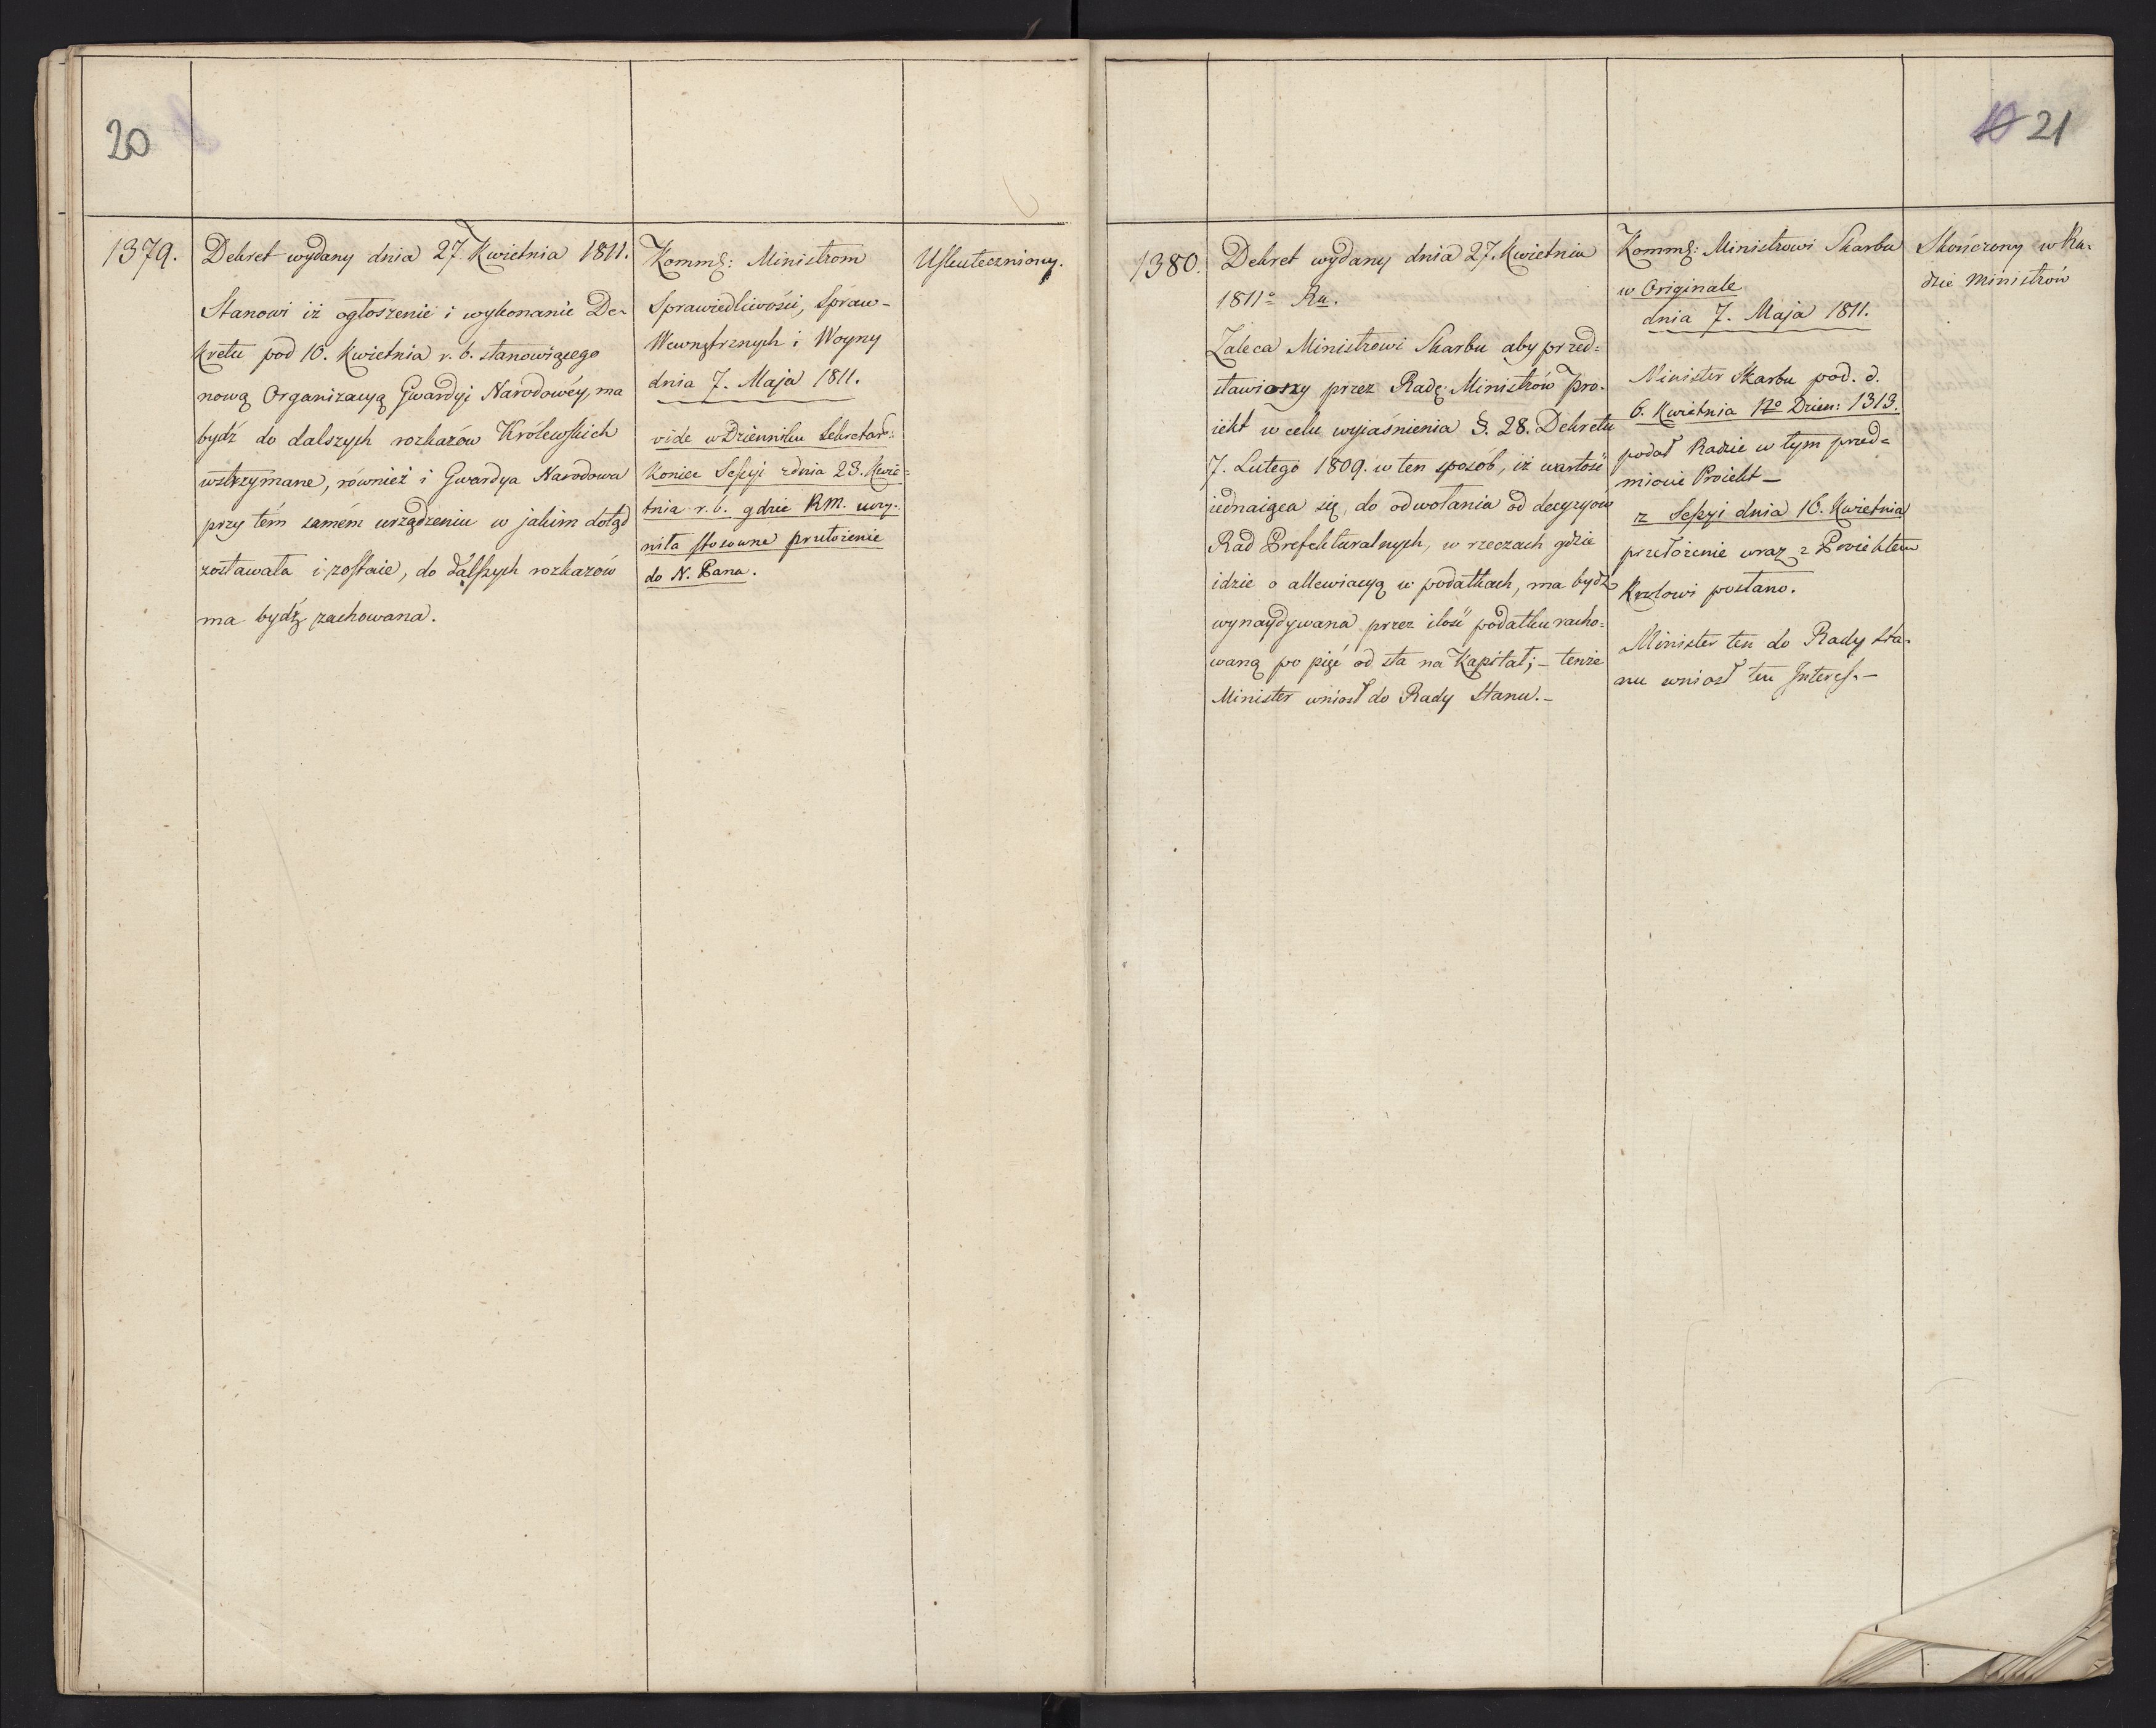 20
1379.
Dekret wydany dnia 27 Kwietnia 1811.
Stanowi iż ogłoszenie i wykonanie De-
kretu pod 10. Kwietnia r. b. stanowiącego
nową Organizacyą Gwardyi Narodowéy, ma
bydź do dalszych rozkazów Królewskich
wstrzymane, również i Gwardya Narodowa
przy tém samém urządzeniu w jakim dotąd
zostawała i zostaie, do dalszych rozkazów
ma bydź zachowana.
Komms: Ministrom
Sprawiedliwości, Spraw-
Wewnętrznych i Woyny
dnia 7. Maja 1811.
vide w Dzienniku Sekretar:
Koniec Sessyi z dnia 23. Kwie=
tnia r. b. gdzie RM. uczy-
niła stosowne przełożenie
do N. Pana.
Uskuteczniony.
10 21
1380.
Dekret wydany dnia 27. Kwietnia
1811o Ru.
Zaleca Ministrowi Skarbu aby przed=
stawiony przez Radę Ministrów Pro-
iekt w celu wyiaśnienia §. 28. Dekretu
7. Lutego 1809. w ten sposób, iż wartość
iednaiąca się do odwołania od decyzyów
Rad Prefekturalnych, w rzeczach gdzie
idzie o allewiacyą w podatkach, ma bydź
wynaydywana przez ilość podatku racho=
waną po pięć od sta na Kapitał; - tenże
Minister wniósł do Rady Stanu. -
Komms: Ministrowi Skarbu
w Originale
dnia 7. Maja 1811.
Minister Skarbu pod. d.
6. Kwietnia No Dzien: 1313.
podał Radzie w tym przed=
miocie Proiekt -
z Sessyi dnia 16. Kwietnia
przełożenie wraz z Proiektem
Krolowi posłano.
Minister ten do Rady Sta-
nu wniosł ten Interess. -
Skończony w Ra-
dzie Ministrów